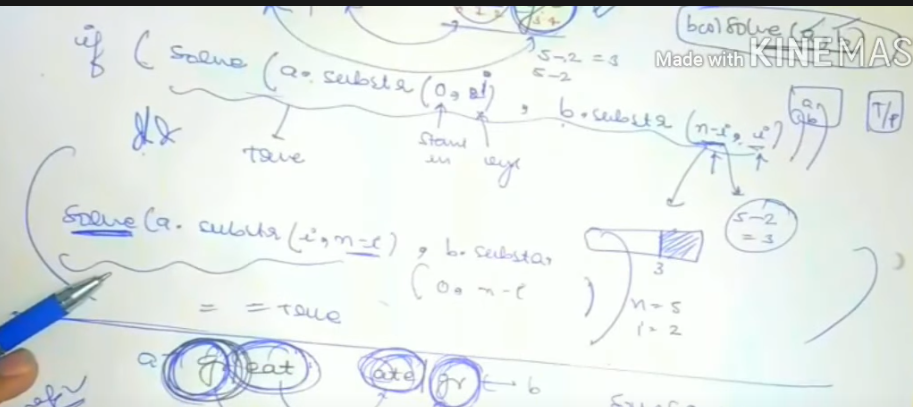 bool solve (
Made with KINEMAS
5-2 = 3
5-2
if ( solve (a. substr (0, i) , b. substr (n-i, i)
T/F
&&
True
Start
in
5-2
= 3
solve (a. substr (i, n-i) , b. substr
(0, n-i )
3
n = 5
i = 2
= = true
a
gr eat
ate gr
b